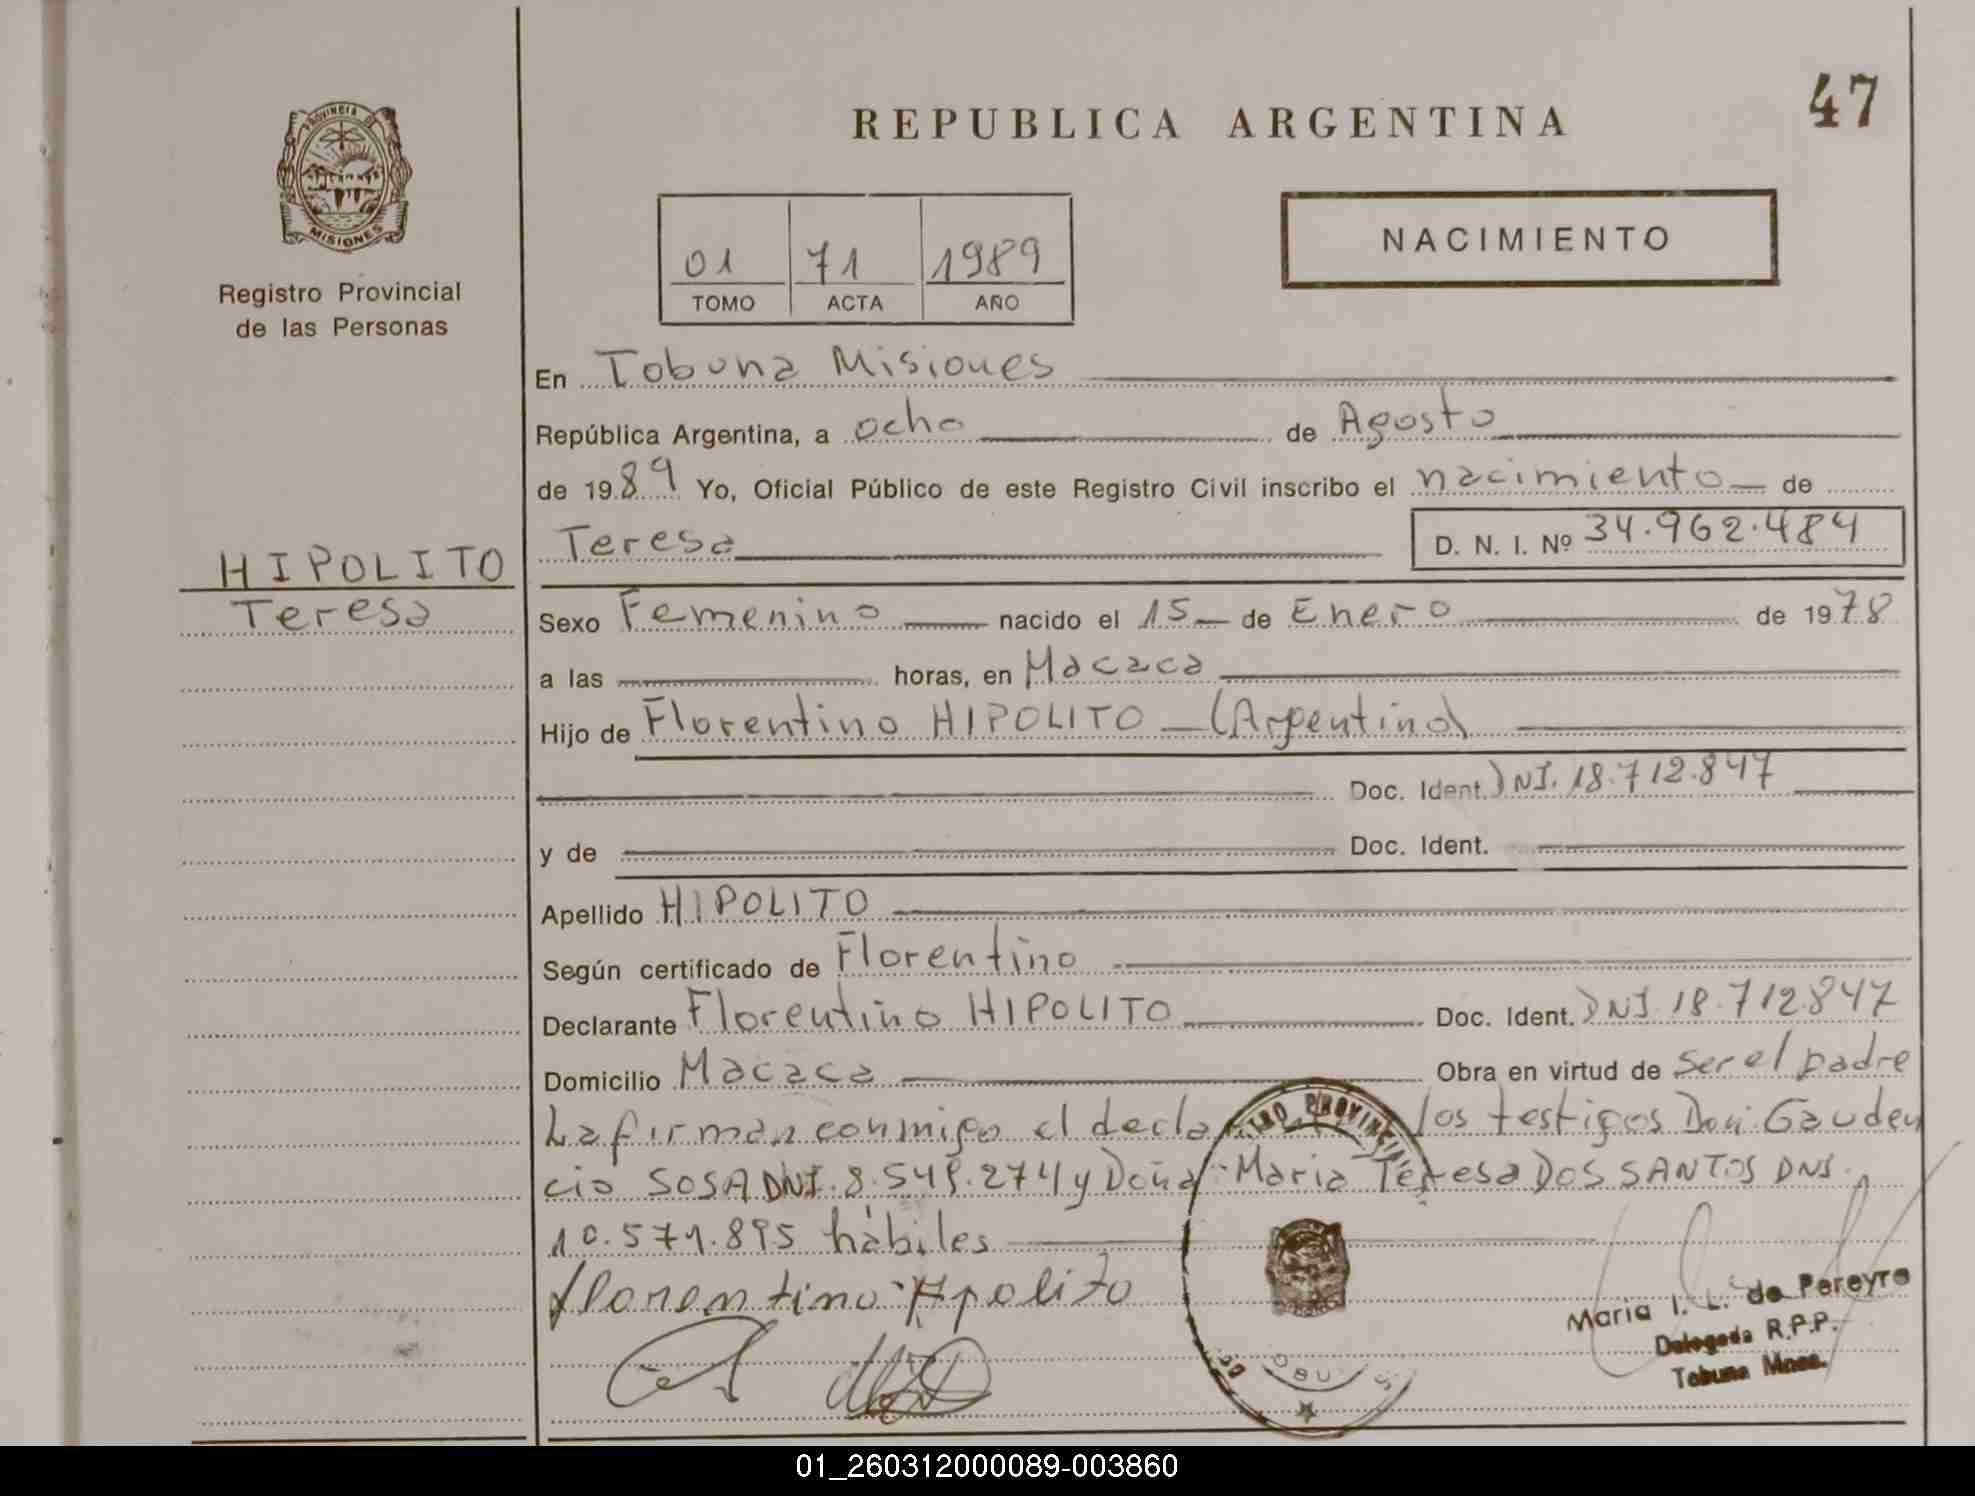 47
REPUBLICA ARGENTINA
PROVINCIA DE
MISIONES
Registro Provincial
de las Personas
01 71 1989
TOMO ACTA AÑO
NACIMIENTO
En Tobuna Misiones
República Argentina, a ocho de Agosto
de 1989 Yo, Oficial Público de este Registro Civil inscribo el nacimiento de
Teresa D. N. I. Nº 34.962.484
HIPOLITO
Teresa
Sexo Femenino nacido el 15 de Enero de 1978
a las horas, en Macaca
Hijo de Florentino HIPOLITO (Argentino)
Doc. Ident. DNI. 18.712.847
y de Doc. Ident.
Apellido HIPOLITO
Según certificado de Florentino
Declarante Florentino HIPOLITO Doc. Ident. DNI. 18.712.847
Domicilio Macaca Obra en virtud de ser el padre
La firman conmigo el decla los testigos Don: Gauden
cio SOSA DNI. 8.549.274 y Doña: Maria Teresa DOS SANTOS DNI.
10.571.895 hábiles
florentino Hpolito
Maria I. L. de Pereyra
Delegada R.P.P.
Tobuna Mnes.
01_260312000089-003860